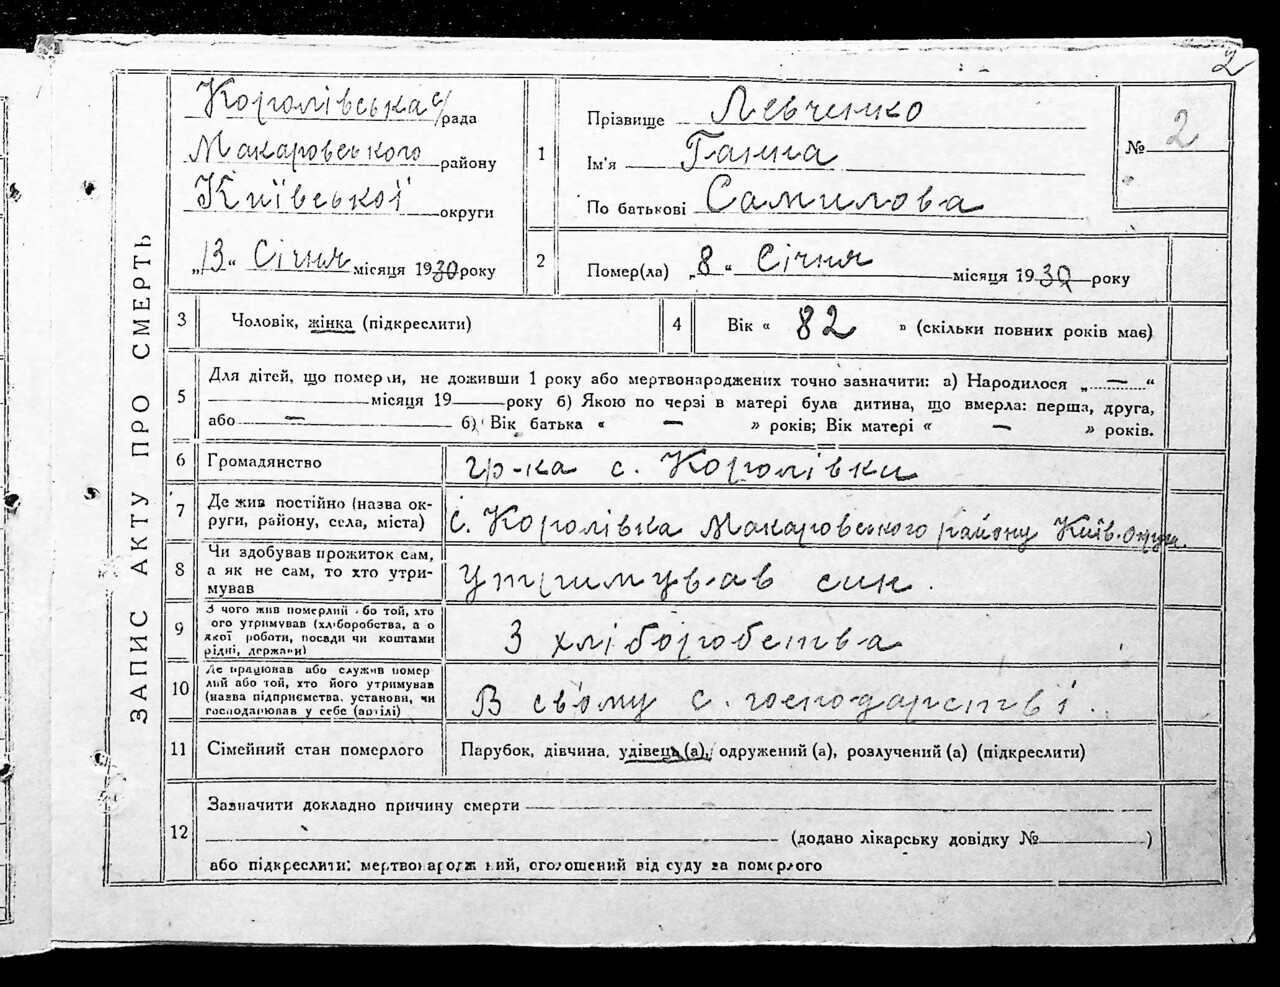 2
ЗАПИС АКТУ ПРО СМЕРТЬ
Королівська с/рада
Макаровського району
Київської округи
„13“ Січня місяця 1930 року
1
Прізвище Левченко
Ім'я Ганна
По батькові Самилова
№ 2
2
Помер(ла) „8“ Січня місяця 1930 року
3
Чоловік, жінка (підкреслити)
4
Вік « 82 » (скільки повних років має)
5
Для дітей, що померли, не доживши 1 року або мертвонароджених точно зазначити: а) Народилося „ — “
місяця 19 року б) Якою по черзі в матері була дитина, що вмерла: перша, друга,
або — б) Вік батька « — » років; Вік матері « — » років.
6
Громадянство
гр-ка с. Королівки
7
Де жив постійно (назва ок-
руги, району, села, міста)
с. Королівка Макаровського району Київ. округи.
8
Чи здобував прожиток сам,
а як не сам, то хто утри-
мував
утримував син.
9
З чого жив померлий або той, хто
ого утримував (хліборобства, а о
якої роботи, посади чи коштами
рідні, держави)
З хліборобства
10
Де працював або служив помер
лий або той, хто його утримував
(назва підприємства, установи, чи
господарював у себе (артілі)
В свому с. господарстві.
11
Сімейний стан померлого
Парубок, дівчина, удівець (а), одружений (а), розлучений (а) (підкреслити)
12
Зазначити докладно причину смерти
(додано лікарську довідку № )
або підкреслити: мертвонароджений, оголошений від суду за померлого